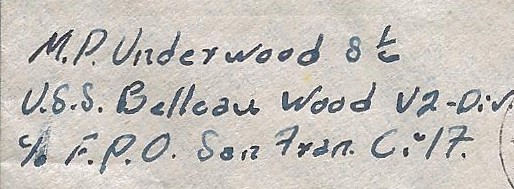 M.P. Underwood S 1/c
U.S.S. Belleau Wood V2-Div.
c/o F.P.O. San Fran. Cal.